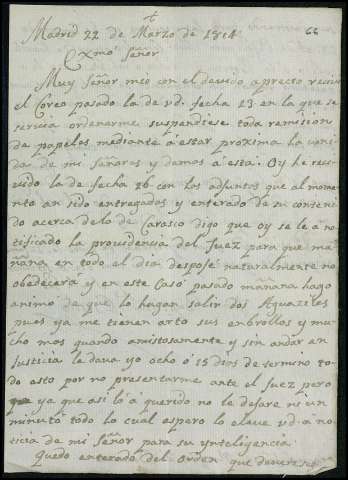 Madrid 22 de Marzo de 1814
66
Exmô Señor
Muy Señor meo con el devido aprecto recivi
el Coreo pasado la de vd. fecha 13 en la que se
servia ordenarme suspendiese toda remision
de papeles mediante á estar proxima la veni
da de mi señores y demas á esta. Oy he reci
vido la de fecha 16 con los adjuntos que al mome
nto an sido entregados y enterado de su conteni
do acerca de lo de Carasco digo que oy se le á no
tificado la providencia del Juez para que ma
ñana en todo el dia despofe naturalmente no
obedecerá y en este Caso pasado mañana hago
animo de que lo hagan salir dos Aguaziles
pues ya me tienen arto sus enbrollos y mu
cho mas quando amistosamente y sin andar en
Justicia le dava yo ocho ó 15 dias de termino to
do esto por no presentarme ante el Juez pero
ya que asi lo á querido no le defare ni un
minuto todo lo cual espero lo eleve vd. a no
ticia de mi Señor para su ynteligencia
Quedo enterado del orden que devere se